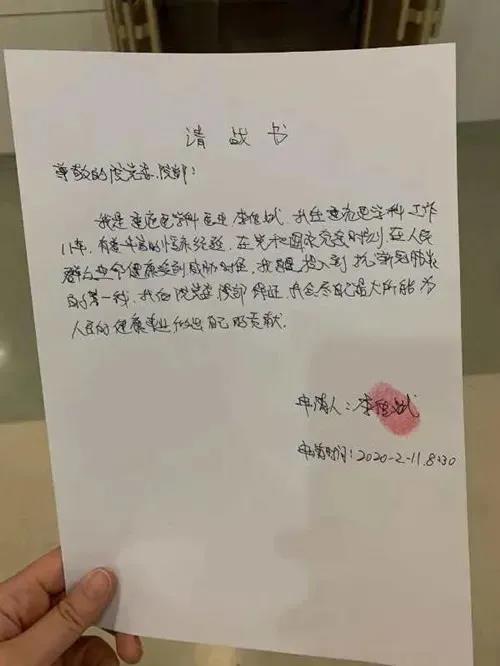 请战书
尊敬的院党委、院部:
我是重症医学科医生李恒斌,我在重症医学科工作
11年,有着丰富的临床经验,在党和国家危急时刻,在人民
群众生命健康受到威胁时候,我愿投入到抗新冠肺炎
的第一线,我向院党委院部保证,我会尽自己最大所能为
人民的健康事业做出自己的贡献.
申请人:李斌
申请时间:2020-2-11.8:30